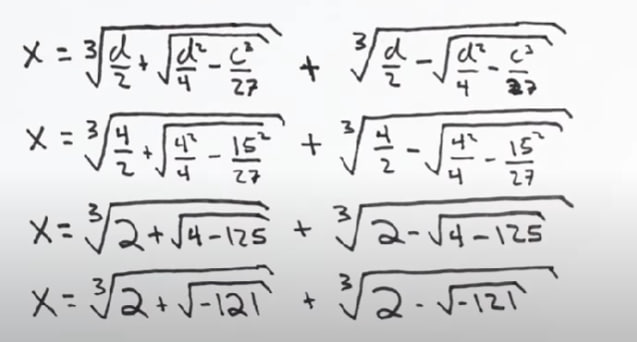 x = ∛(d/2 + √(d²/4 - c³/27)) + ∛(d/2 - √(d²/4 - c³/27))
x = ∛(4/2 + √(4²/4 - 15²/27)) + ∛(4/2 - √(4²/4 - 15²/27))
x = ∛(2 + √(4 - 125)) + ∛(2 - √(4 - 125))
x = ∛(2 + √(-121)) + ∛(2 - √(-121))